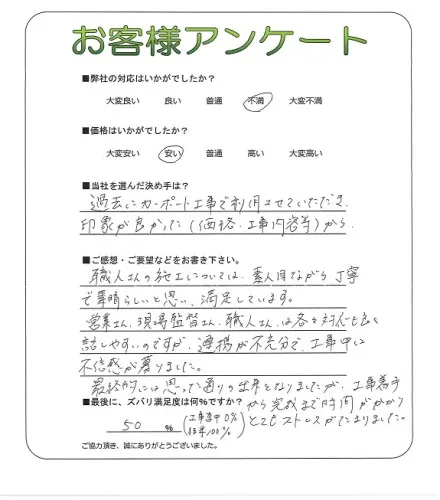 お客様アンケート
■弊社の対応はいかがでしたか？
大変良い 良い 普通 不満 大変不満
■価格はいかがでしたか？
大変安い 安い 普通 高い 大変高い
■当社を選んだ決め手は？
過去にカーポート工事で利用させていただき
印象が良かった（価格・工事内容等）から
■ご感想・ご要望などをお書き下さい。
職人さんの施工については、素人目ながら丁寧
で素晴らしいと思い、満足しています。
営業さん、現場監督さん、職人さんは各々対応も良く
話しやすいのですが、連携が不充分で、工事中に
不信感が募りました。
最終的には思った通りの出来となりましたが、工事着手
から完成まで時間がかかり
とてもストレスがたまりました。
■最後に、ズバリ満足度は何%ですか？
50 % (工事途中0% 結果100%)
ご協力頂き、誠にありがとうございました。